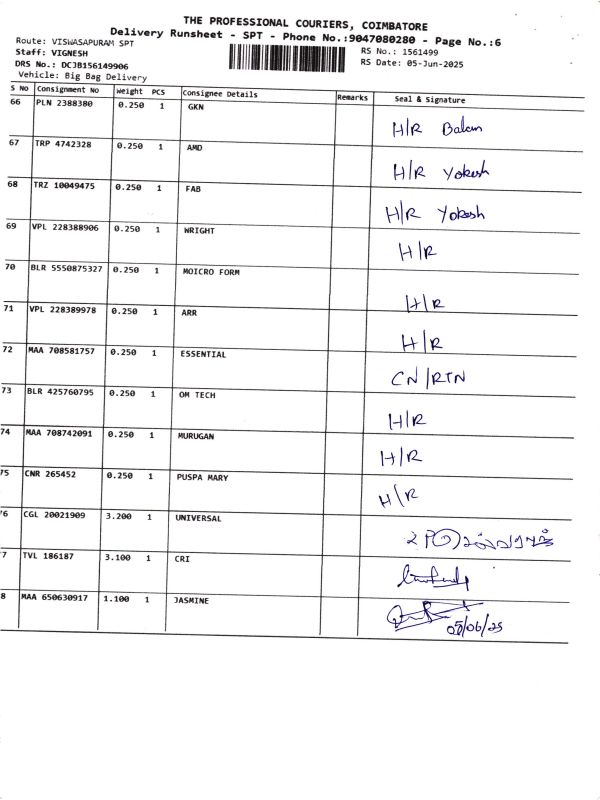 THE PROFESSIONAL COURIERS, COIMBATORE
Delivery Runsheet - SPT - Phone No.:9047080280 - Page No.:6
Route: VISWASAPURAM SPT
RS No.: 1561499
Staff: VIGNESH
RS Date: 05-Jun-2025
DRS No.: DCJB156149906
Vehicle: Big Bag Delivery
S No Consignment No Weight PCS Consignee Details Remarks Seal & Signature
66 PLN 2388380 0.250 1 GKN H/R Balan
67 TRP 4742328 0.250 1 AMD H/R Yokesh
68 TRZ 10049475 0.250 1 FAB H/R Yokesh
69 VPL 228388906 0.250 1 WRIGHT H/R
70 BLR 5550875327 0.250 1 MOICRO FORM H/R
71 VPL 228389978 0.250 1 ARR H/R
72 MAA 708581757 0.250 1 ESSENTIAL CN/RTN
73 BLR 425760795 0.250 1 OM TECH H/R
74 MAA 708742091 0.250 1 MURUGAN H/R
75 CNR 265452 0.250 1 PUSPA MARY H/R
76 CGL 20021909 3.200 1 UNIVERSAL
7 TVL 186187 3.100 1 CRI
8 MAA 650630917 1.100 1 JASMINE
05/06/25